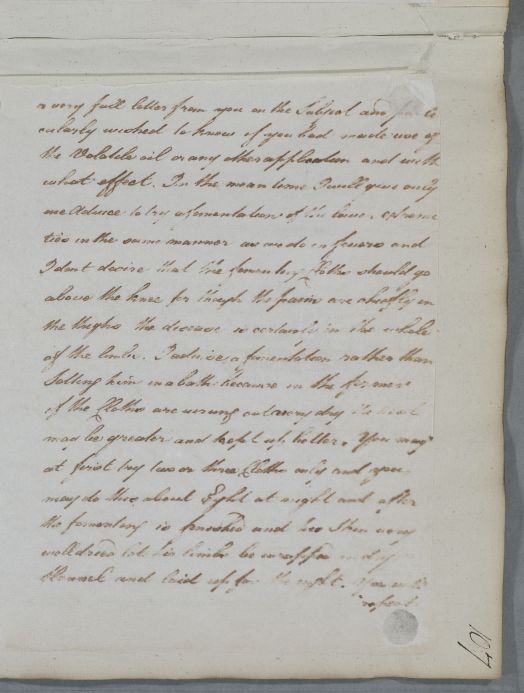 a very full letter from you on the Subject and par
cularly wished to know if you had made use of
the Volatile oil or any other application and with
what effect. In the mean time I will give only
one Advice to try a fomentation of the lower extreme
ties in the same manner as we do in fevers and
I dont desire that the fomenting Cloths should go
above the knee for though the pains are chiefly in
the thighs the disease is certainly in the whole
of the limbs. I advise a fomentation rather than
Setting him in a bath because in the former
if the Cloths are wrung out very dry the heat
may be greater and kept up better. You may
at first try two or three Cloths only and you
may do this about Eight at night and after
the fomenting is finished and his Skin very
well dried let his limbs be wrapped in dry
flannel and laid up for the night. You will
repeat
107